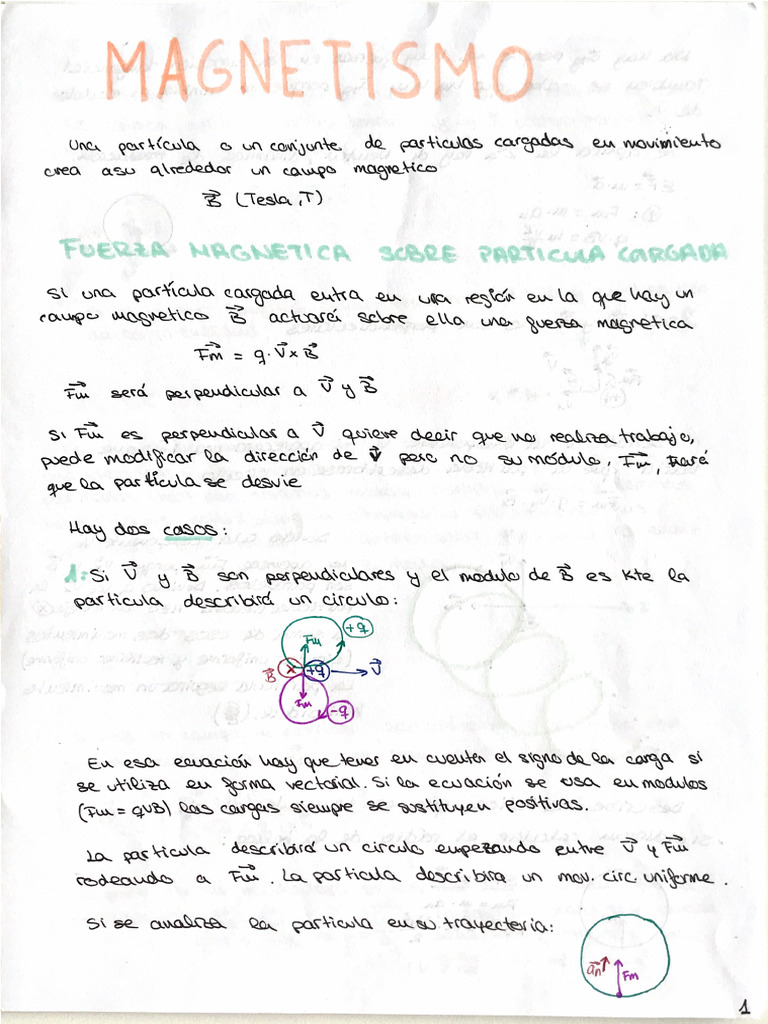 MAGNETISMO
Una partícula o un conjunto de particulas cargadas en movimiento
crea asu alrededor un campo magnetico
B⃗ (Tesla, T)
FUERZA MAGNETICA SOBRE PARTICULA CARGADA
Si una partícula cargada entra en una región en la que hay un
campo magnetico B⃗ actuará sobre ella una fuerza magnética
F⃗m = q · V⃗ x B⃗
F⃗m será perpendicular a V⃗ y B⃗
Si F⃗m es perpendicular a V⃗ quiere decir que no realiza trabajo,
puede modificar la dirección de V⃗ pero no su módulo, F⃗m, hará
que la partícula se desvie
Hay dos casos:
1: Si V⃗ y B⃗ son perpendiculares y el modulo de B⃗ es Kte la
particula describirá un circulo:
+q
Fm
B⃗ x +q V⃗
Fm
-q
En esa ecuación hay que tener en cuenta el signo de la carga si
se utiliza en forma vectorial. Si la ecuación se usa en modulos
(Fm = qvB) las cargas siempre se sustituyen positivas.
La particula describirá un circulo empezando entre V⃗ y F⃗m
rodeando a F⃗m. La particula describira un mov. circ. uniforme.
Si se analiza la particula en su trayectoria:
a⃗n Fm
1